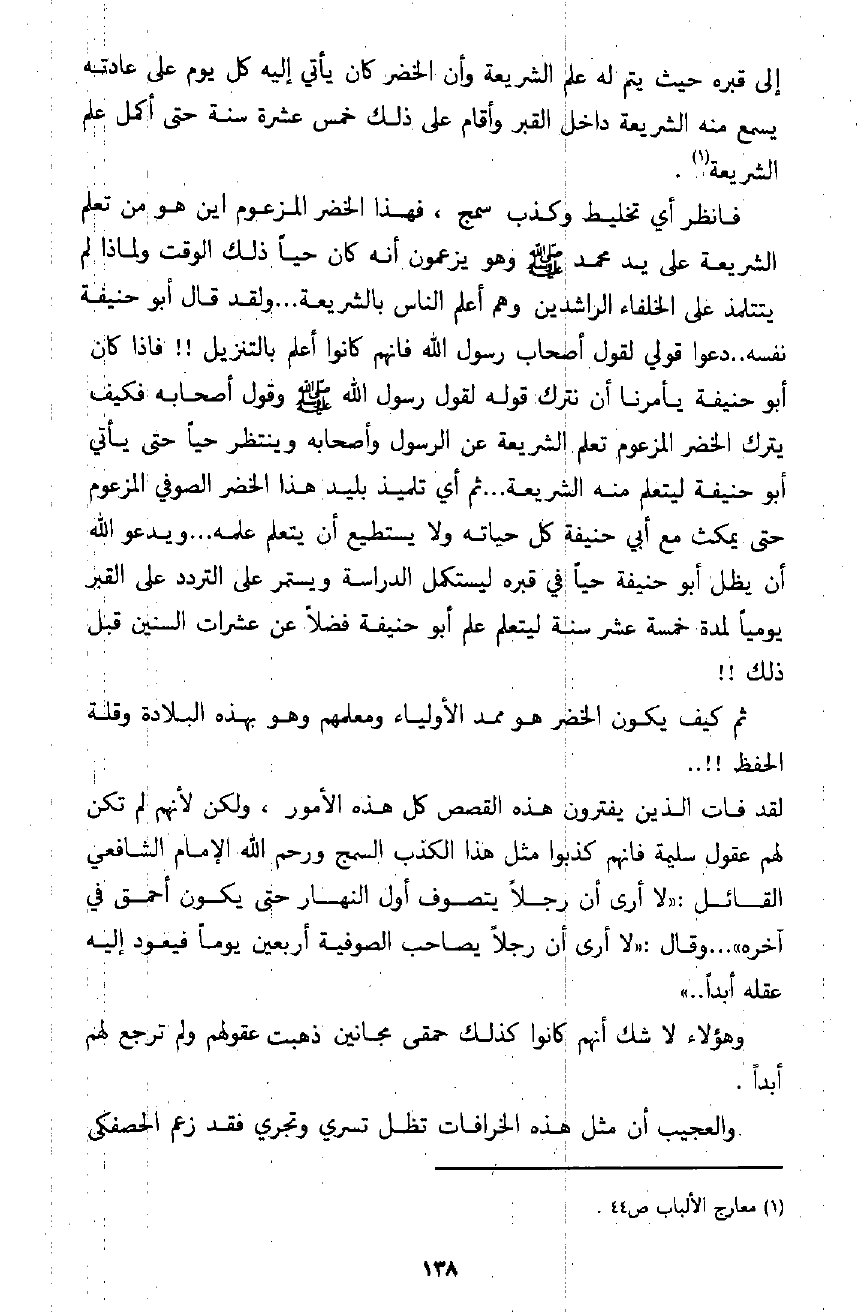 إلى قبره حيث يتم له علم الشريعة وأن الخضر كان يأتي إليه كل يوم على عادتـه
يسمع منه الشريعة داخل القبر وأقام على ذلـك خمس عشرة سنـة حتى أكمل علم
الشريعة(١) .
فـانظر أي تخليـط وكـذب سمج ، فهـذا الخضر المـزعـوم اين هـو من تعلم
الشريعـة على يـد محمـد ﷺ وهو يزعمون أنـه كان حيـاً ذلـك الوقت ولمـاذا لم
يتتلمذ على الخلفـاء الراشدين وهم أعلم الناس بالشريعـة...ولقـد قـال أبو حنيفـة
نفسه..دعوا قولي لقول أصحاب رسول الله فانهم كانوا أعلم بالتنزيل !! فاذا كان
أبو حنيفـة يـأمرنـا أن نترك قولـه لقول رسول الله ﷺ وقول أصحـابـه فكيف
يترك الخضر المزعوم تعلم الشريعة عن الرسول وأصحابه وينتظر حيـاً حتى يـأتي
أبو حنيفـة ليتعلم منـه الشريعـة...ثم أي تلميـذ بليـد هـذا الخضر الصوفي المزعوم
حتى يمكث مع أبي حنيفة كل حياتـه ولا يستطيع أن يتعلم علمـه...ويـدعو الله
أن يظـل أبو حنيفة حيـاً في قبره ليستكمل الدراسة ويستمر على التردد على القبر
يومياً لمدة خمسة عشر سنـة ليتعلم علم أبو حنيفـة فضلاً عن عشرات السنين قبـل
ذلك !!
ثم كيف يكـون الخضر هـو ممـد الأوليـاء ومعلمهم وهـو بهـذه البـلادة وقلـة
الحفظ !!..
لقد فـات الـذين يفترون هـذه القصص كل هـذه الأمـور ، ولكن لأنهم لم تكن
لهم عقول سليمة فانهم كذبوا مثل هذا الكذب السمج ورحم الله الإمـام الشـافعي
القـائـل :«لا أرى أن رجـلاً يتصـوف أول النهـار حتى يكـون أحمق في
آخره»...وقـال :«لا أرى أن رجلاً يصـاحب الصوفيـة أربعين يومـاً فيعود إليـه
عقله أبداً..»
وهؤلاء لا شك أنهم كانوا كذلـك حمقى مجـانين ذهبت عقولهم ولم ترجع لهم
أبداً .
والعجيب أن مثل هـذه الخرافـات تظـل تسري وتجري فقـد زعم الحصفكي
(١) معارج الألباب ص٤٤ .
١٣٨